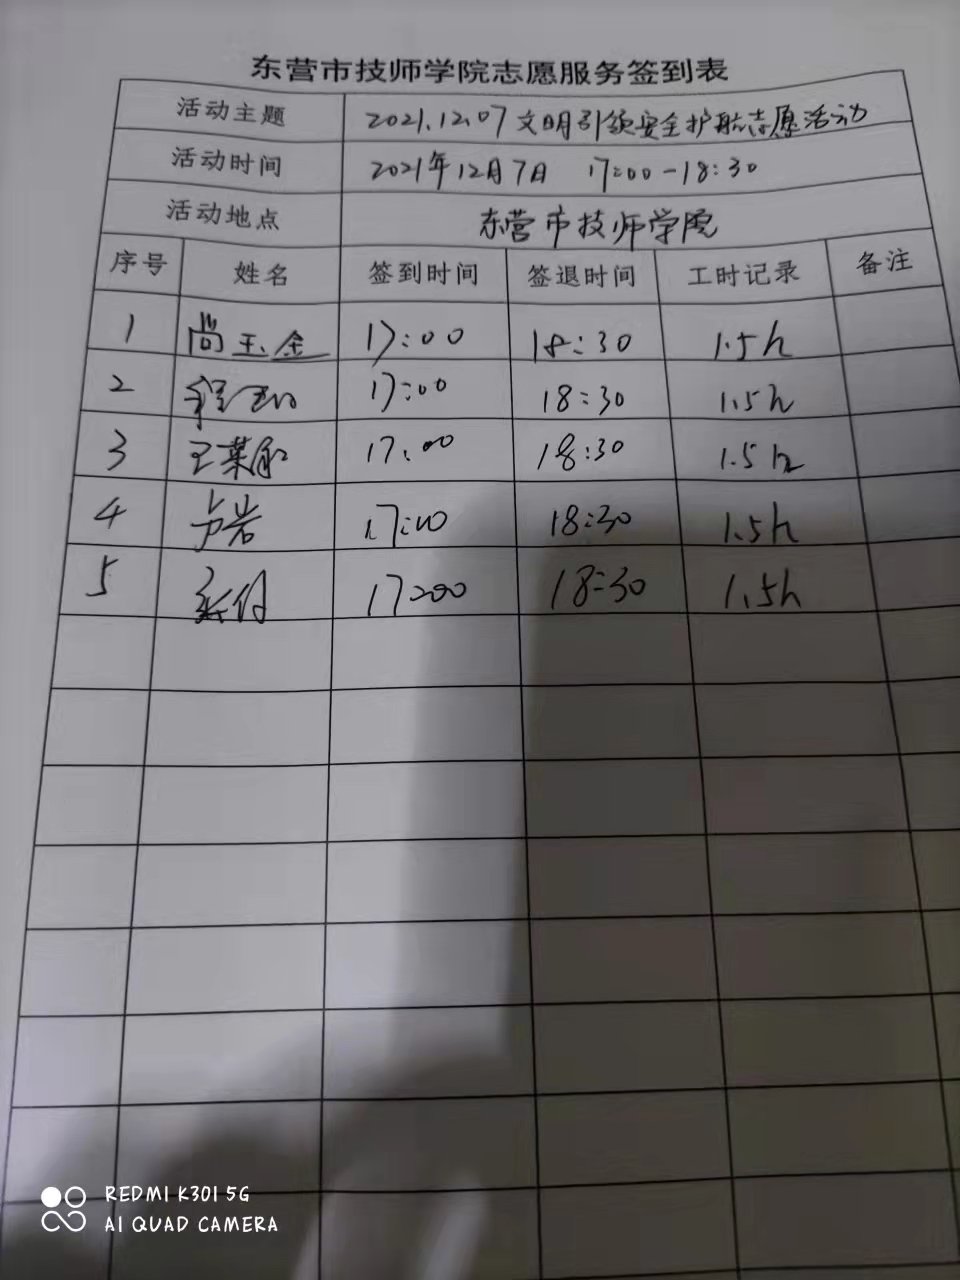 东营市技师学院志愿服务签到表
活动主题 2021.12.07文明引领安全护航志愿活动
活动时间 2021年12月7日 17:00-18:30
活动地点 东营市技师学院
序号 姓名 签到时间 签退时间 工时记录 备注
1 尚玉金 17:00 18:30 1.5h
2 17:00 18:30 1.5h
3 王 17:00 18:30 1.5h
4 卢岩 17:00 18:30 1.5h
5 17:00 18:30 1.5h
REDMI K30I 5G
AI QUAD CAMERA